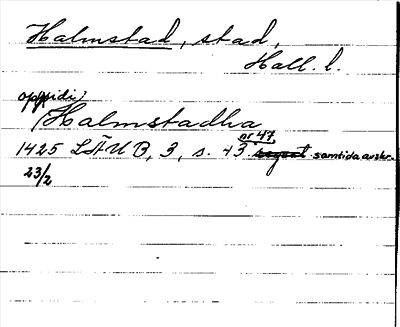 Halmstad, stad,
Hall. l.
oppidi)
(Halmstadha
nr 47
1425 LÄUB, 3, s. 43. regest samtida avskr.
23/2